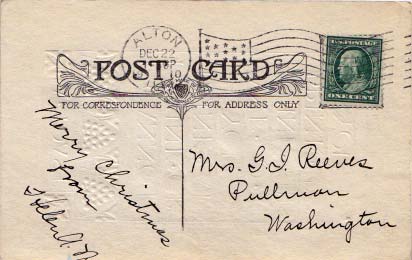 ALTON
DEC 22
POST CARD
FOR CORRESPONDENCE
FOR ADDRESS ONLY
U.S. POSTAGE
ONE CENT
Merry Christmas
from
Helen
Mrs. G. I. Reeves
Pullman
Washington